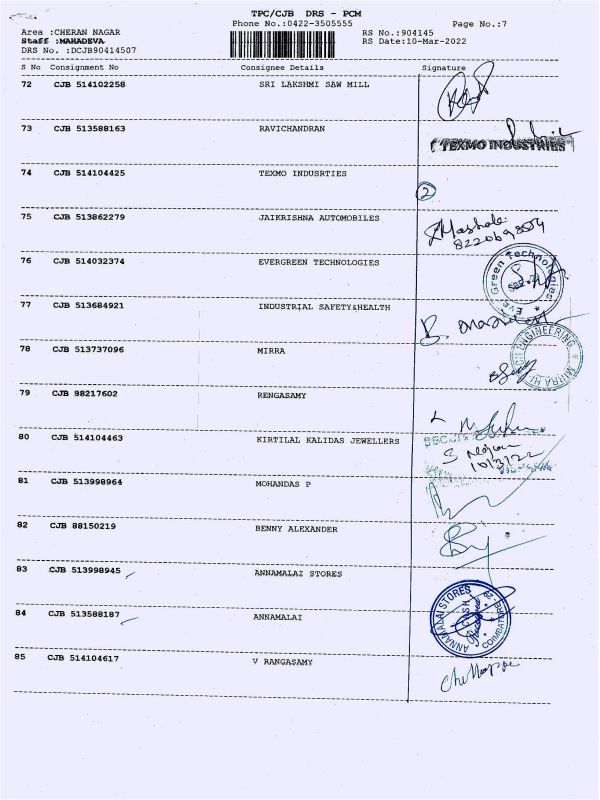 TPC/CJB DRS - PCM
Phone No.:0422-3505555
Page No.:7
Area :CHERAN NAGAR
RS No.:904145
Staff :MAHADEVA
RS Date:10-Mar-2022
DRS No. :DCJB90414507
S No Consignment No Consignee Details Signature
72 CJB 514102258 SRI LAKSHMI SAW MILL
73 CJB 513588163 RAVICHANDRAN
TEXMO INDUSTRIES
74 CJB 514104425 TEXMO INDUSRTIES
2
75 CJB 513862279 JAIKRISHNA AUTOMOBILES
76 CJB 514032374 EVERGREEN TECHNOLOGIES
Ever Green Technologies
77 CJB 513684921 INDUSTRIAL SAFETY&HEALTH
78 CJB 513737096 MIRRA
MIRRA HI TECH ENGINEERING
79 CJB 98217602 RENGASAMY
80 CJB 514104463 KIRTILAL KALIDAS JEWELLERS
10/3/22
81 CJB 513998964 MOHANDAS P
82 CJB 88150219 BENNY ALEXANDER
83 CJB 513998945 ANNAMALAI STORES
ANNAMALAI STORES
84 CJB 513588187 ANNAMALAI
85 CJB 514104617 V RANGASAMY